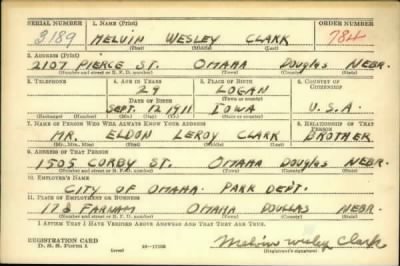 SERIAL NUMBER 1. NAME (Print) ORDER NUMBER
3189 MELVIN WESLEY CLARK 784
(First) (Middle) (Last)
2. ADDRESS (Print)
2107 PIERCE ST. OMAHA DOUGLAS NEBR.
(Number and street or R. F. D. number) (Town) (County) (State)
3. TELEPHONE 4. AGE IN YEARS 5. PLACE OF BIRTH 6. COUNTRY OF CITIZENSHIP
29 LOGAN
DATE OF BIRTH (Town or county)
SEPT. 12 1911 IOWA U.S.A.
(Exchange) (Number) (Mo.) (Day) (Yr.) (State or country)
7. NAME OF PERSON WHO WILL ALWAYS KNOW YOUR ADDRESS 8. RELATIONSHIP OF THAT PERSON
MR. ELDON LEROY CLARK BROTHER
(Mr., Mrs., Miss) (First) (Middle) (Last)
9. ADDRESS OF THAT PERSON
1505 CORBY ST. OMAHA DOUGLAS NEBR.
(Number and street or R. F. D. number) (Town) (County) (State)
10. EMPLOYER'S NAME
CITY OF OMAHA. PARK DEPT.
11. PLACE OF EMPLOYMENT OR BUSINESS
FARNAM OMAHA DOUGLAS NEBR.
(Number and street or R. F. D. number) (Town) (County) (State)
I AFFIRM THAT I HAVE VERIFIED ABOVE ANSWERS AND THAT THEY ARE TRUE.
REGISTRATION CARD
D. S. S. Form 1 (over) Melvin Wesley Clark
(Registrant's signature)